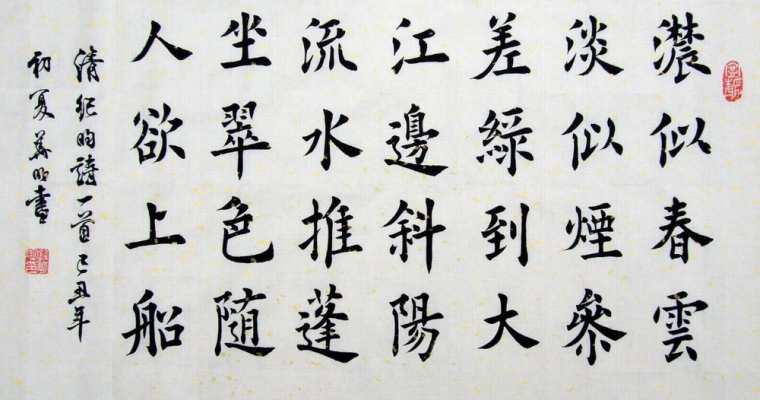 濃似春雲
淡似煙參
差綠到大
江邊斜陽
流水推蓬
坐翠色隨
人欲上船
清紀昀詩一首己丑年
初夏書